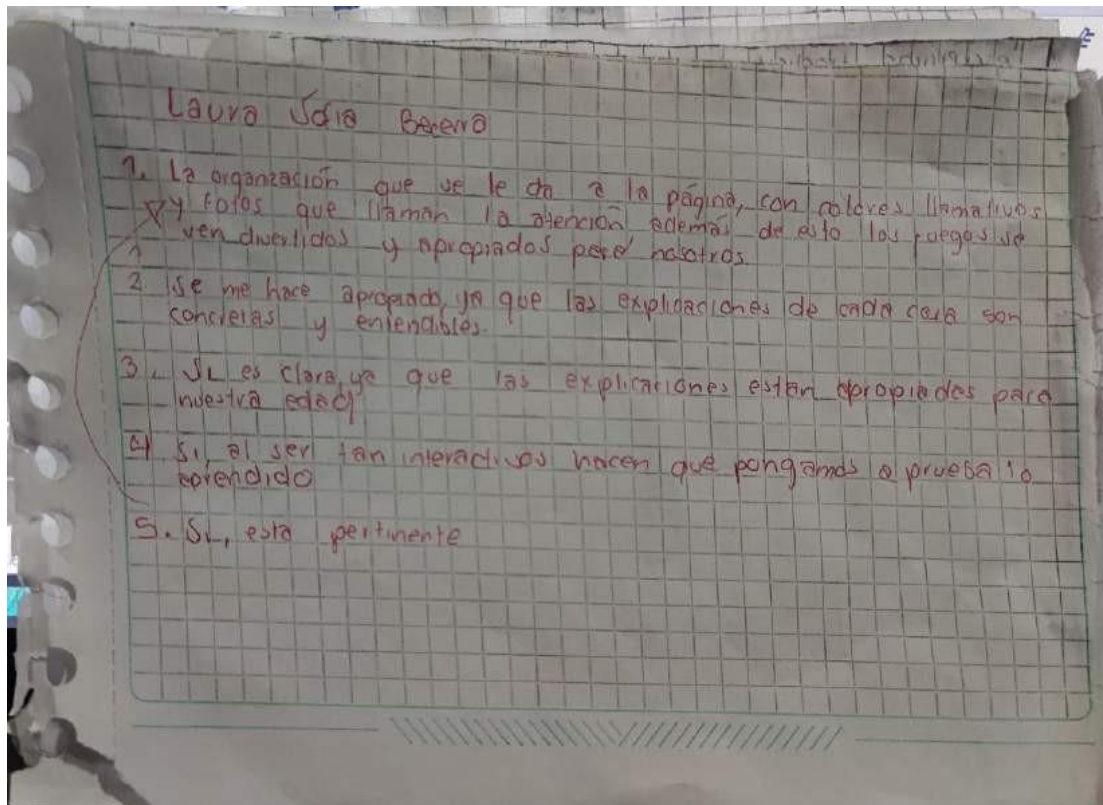 Laura Sofia Becerra
1. La organización que se le da a la página, con colores llamativos
y fotos que llaman la atención además de esto los juegos se
ven divertidos y apropiados para nosotros.
2 Se me hace apropiado, ya que las explicaciones de cada cosa son
concretas y entendibles.
3. Si es clara, ya que las explicaciones estan apropiadas para
nuestra edad
4 Si al ser tan interactivos hacen que pongamos a prueba lo
aprendido
5. Si, esta pertinente